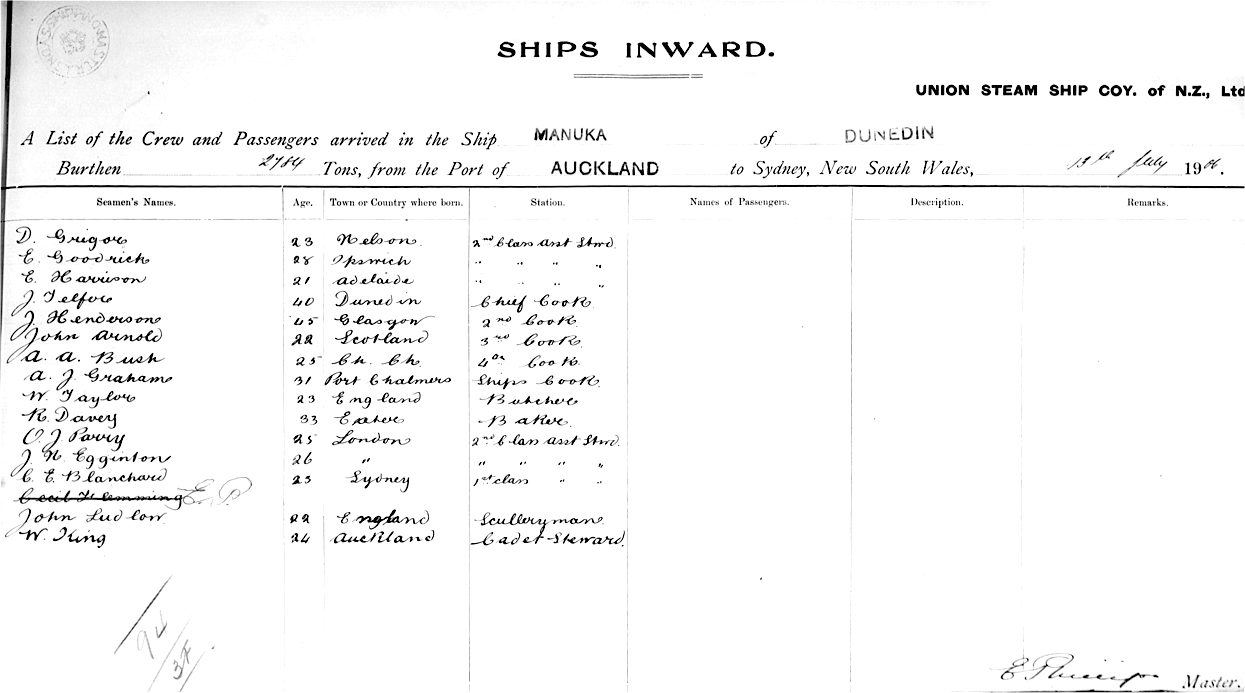 SHIPS INWARD.
UNION STEAM SHIP COY. of N.Z., Ltd
A List of the Crew and Passengers arrived in the Ship MANUKA of DUNEDIN
Burthen 2784 Tons, from the Port of AUCKLAND to Sydney, New South Wales, 13th July 1906.
Seamen's Names. Age. Town or Country where born. Station. Names of Passengers. Description. Remarks.
D. Grigor 23 Nelson. 2nd Class Asst Stwd.
E. Goodrich 28 Ipswich " " " "
E. Harrison 21 Adelaide " " " "
J. Telfor 40 Dunedin Chief Cook.
J. Henderson 45 Glasgow 2nd Cook.
John Arnold 22 Scotland 3rd Cook.
A. A. Bush 25 Ch. Ch. 4th Cook.
A. J. Graham 31 Port Chalmers Ships Cook.
W. Taylor 23 England Butcher
R. Davey 33 Exeter Baker.
O. J. Parry 25 London 2nd Class Asst Stwd.
J. N. Egginton 26 " " " " "
C. E. Blanchard 23 Sydney 1st Class " "
Cecil Flemming E. P
John Ludlow. 22 England Scullery man.
W. King 24 Auckland Cadet Steward.
94
37
E Phillips Master.